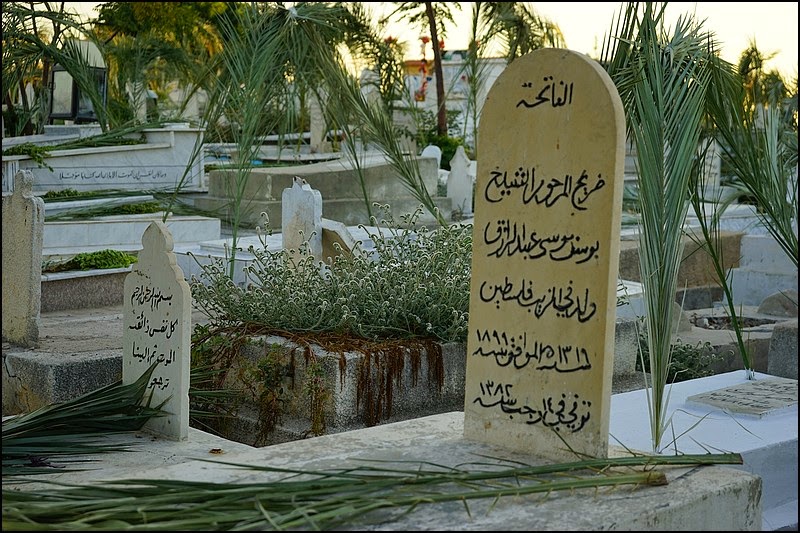 الفاتحة
ضريح المرحوم الشيخ
يوسف موسى عبد الرزق
ولد في المزيب فلسطين
سنة ١٣١٦ الموافق سنة ١٨٩٩
توفي في ١٤ رجب سنة ١٣٨٢
بسم الله الرحمن الرحيم
كل نفس ذائقة
الموت ثم الينا
ترجعون